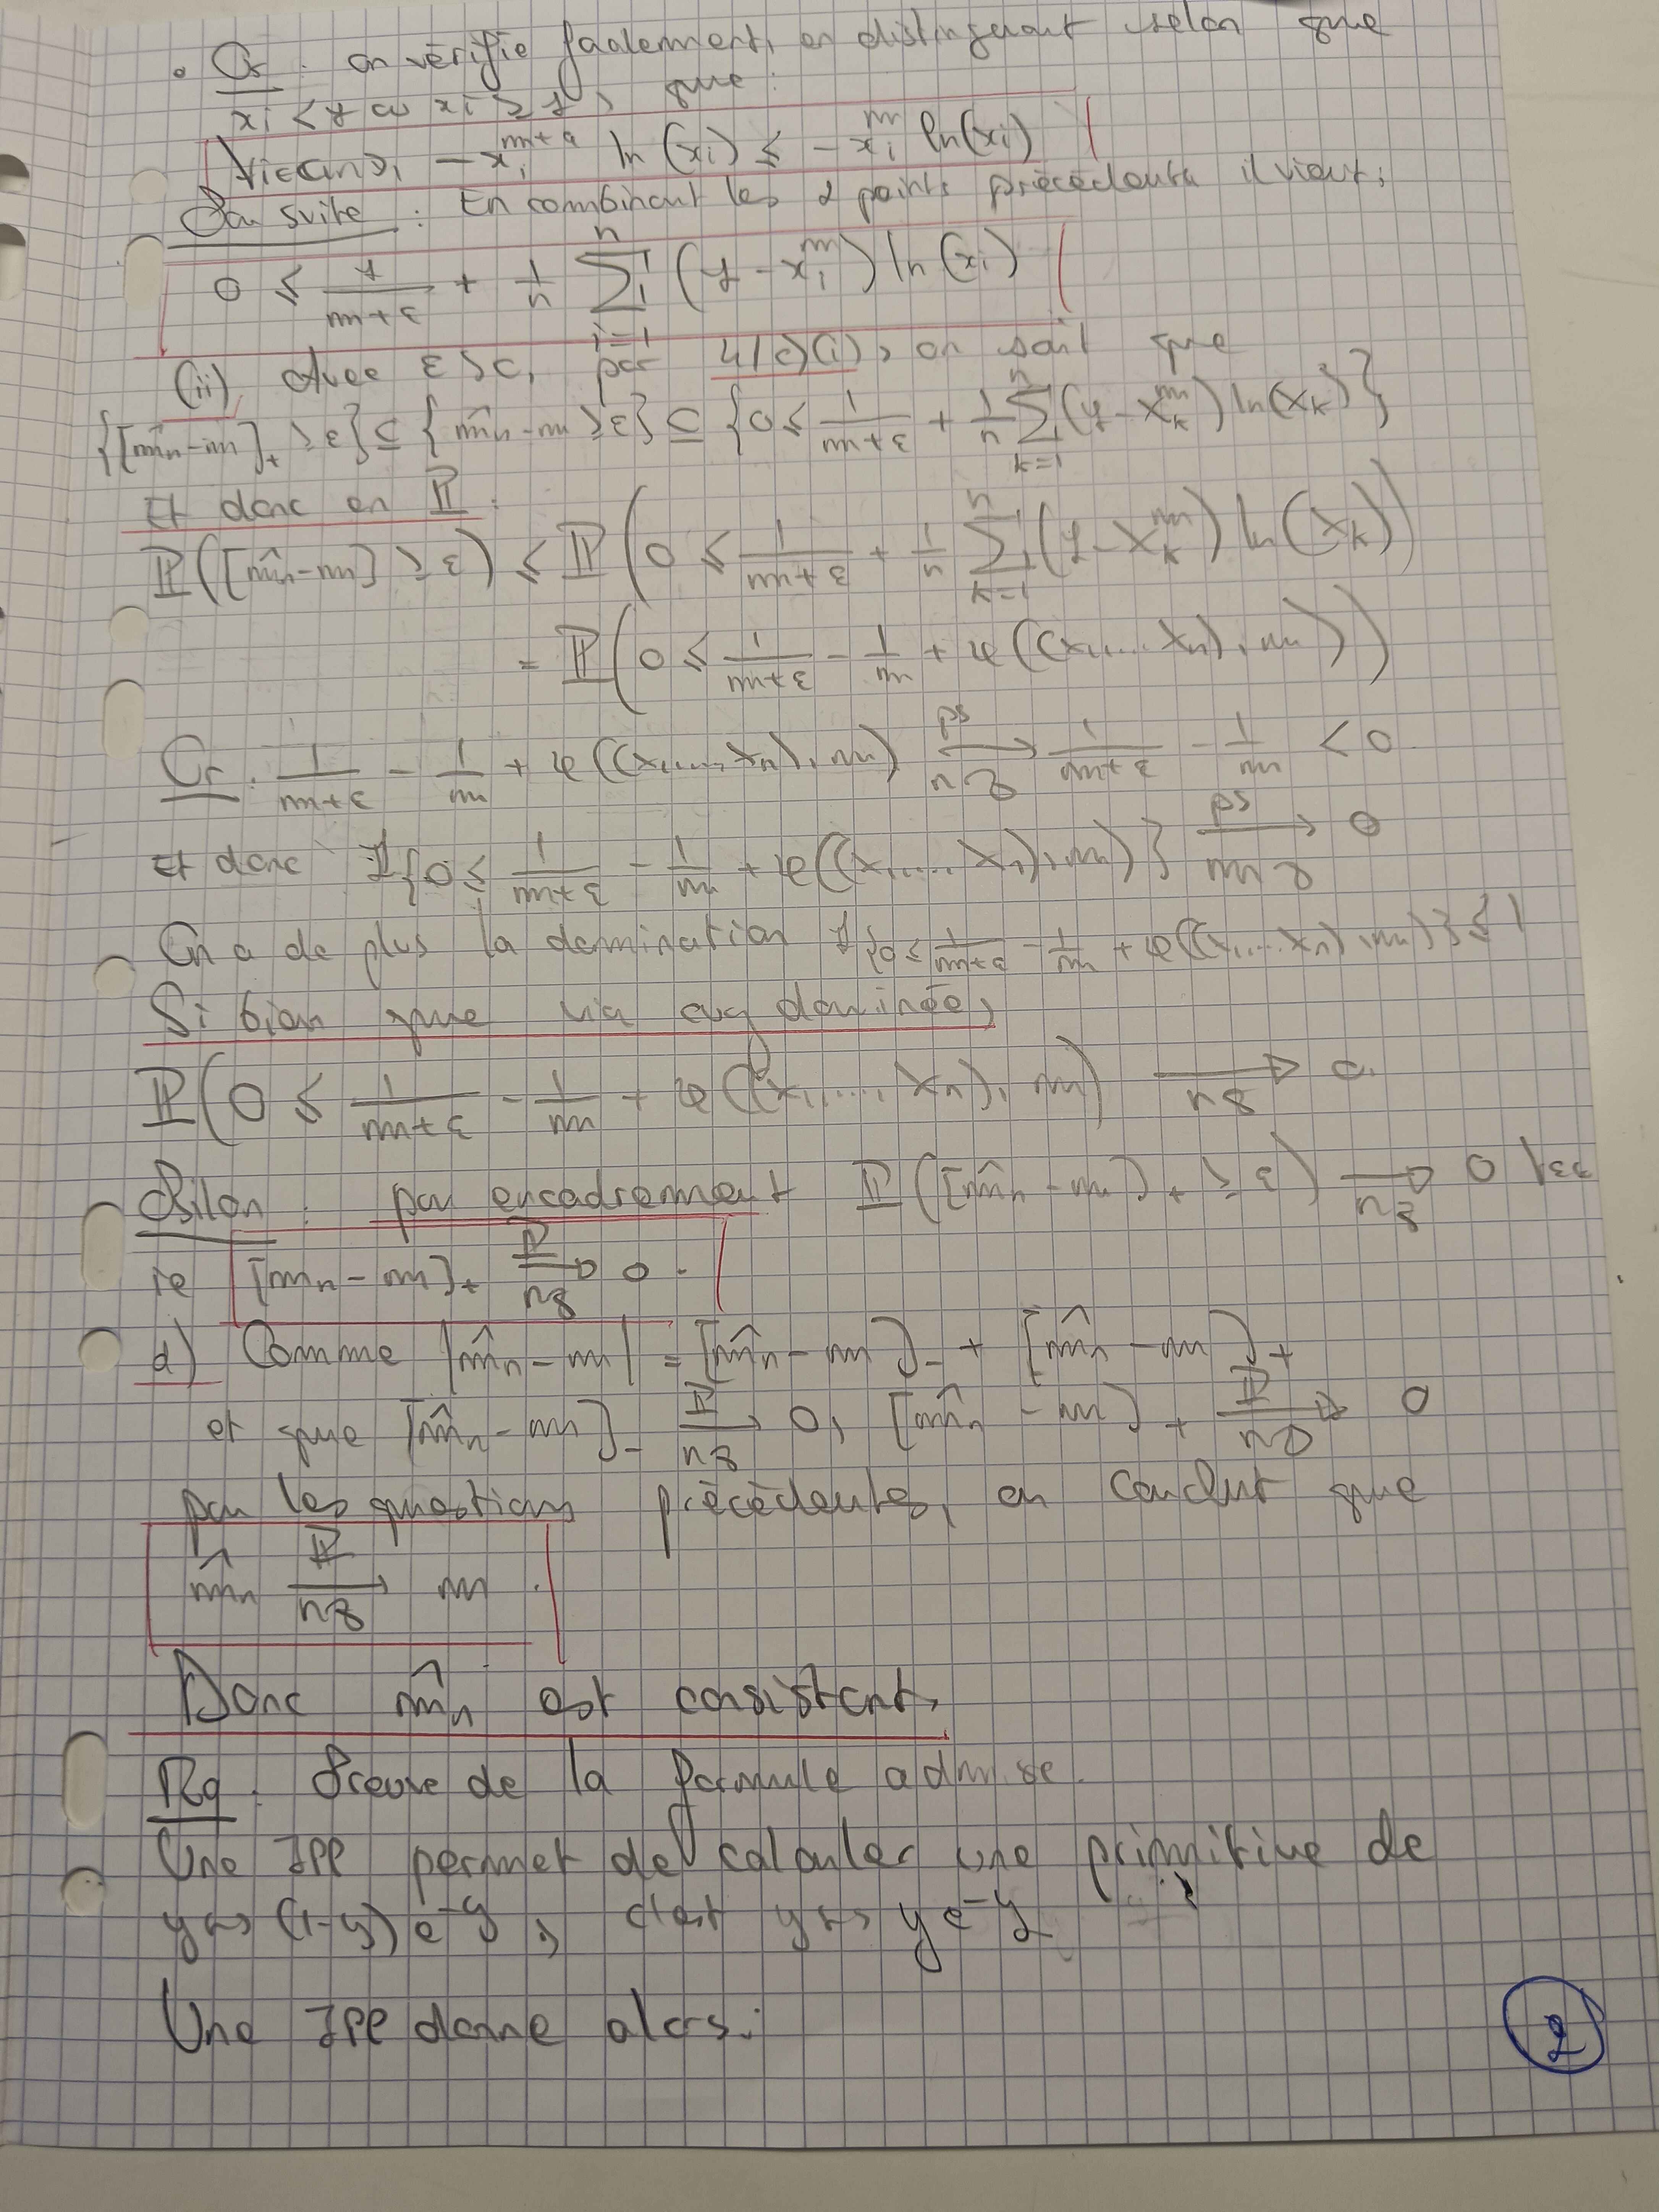 • Or : on vérifie facilement, en distinguant selon que
xi < 1 ou xi ≥ 1, que :
∀i∈⟦1,n⟧, −xi^{m+ε} ln(xi) ≤ −xi^m ln(xi)
Par suite : En combinant les 2 points précédents il vient :
0 ≤ 1/(m+ε) + 1/n Σ_{i=1}^n (1 − xi^m) ln(xi)
(ii) Avec ε > 0, par 4/c)(i), on sait que
{[m̂n − m]+ ≥ ε} ⊆ {m̂n − m ≥ ε} ⊆ {0 ≤ 1/(m+ε) + 1/n Σ_{k=1}^n (1 − Xk^m) ln(Xk)}
Et donc en ℙ :
ℙ([m̂n − m] ≥ ε) ≤ ℙ(0 ≤ 1/(m+ε) + 1/n Σ_{k=1}^n (1 − Xk^m) ln(Xk))
= ℙ(0 ≤ 1/(m+ε) − 1/m + φ((X1,...,Xn), m))
Or : 1/(m+ε) − 1/m + φ((X1,...,Xn), m) →^{ps}_{n∞} 1/(m+ε) − 1/m < 0
Et donc 𝟙{0 ≤ 1/(m+ε) − 1/m + φ((X1,...,Xn), m)} →^{ps}_{n∞} 0
On a de plus la domination 𝟙{0 ≤ 1/(m+ε) − 1/m + φ((X1,...,Xn), m)} ≤ 1
Si bien que via cvg dominée,
ℙ(0 ≤ 1/(m+ε) − 1/m + φ((X1,...,Xn), m) →_{n∞} 0.
Bilan : par encadrement ℙ([m̂n − m]+ ≥ ε) →_{n∞} 0
ie [m̂n − m]+ →^{ℙ}_{n∞} 0.
d) Comme |m̂n − m| = [m̂n − m]− + [m̂n − m]+
et que [m̂n − m]− →^{ℙ}_{n∞} 0, [m̂n − m]+ →^{ℙ}_{n∞} 0
par les questions précédentes, on conclut que
m̂n →^{ℙ}_{n∞} m.
Donc m̂n est consistent.
Rq : Preuve de la formule admise.
Une IPP permet de calculer une primitive de
y ↦ (1−y) e^{−y}, c'est y ↦ y e^{−y}
Une IPP donne alors :
2